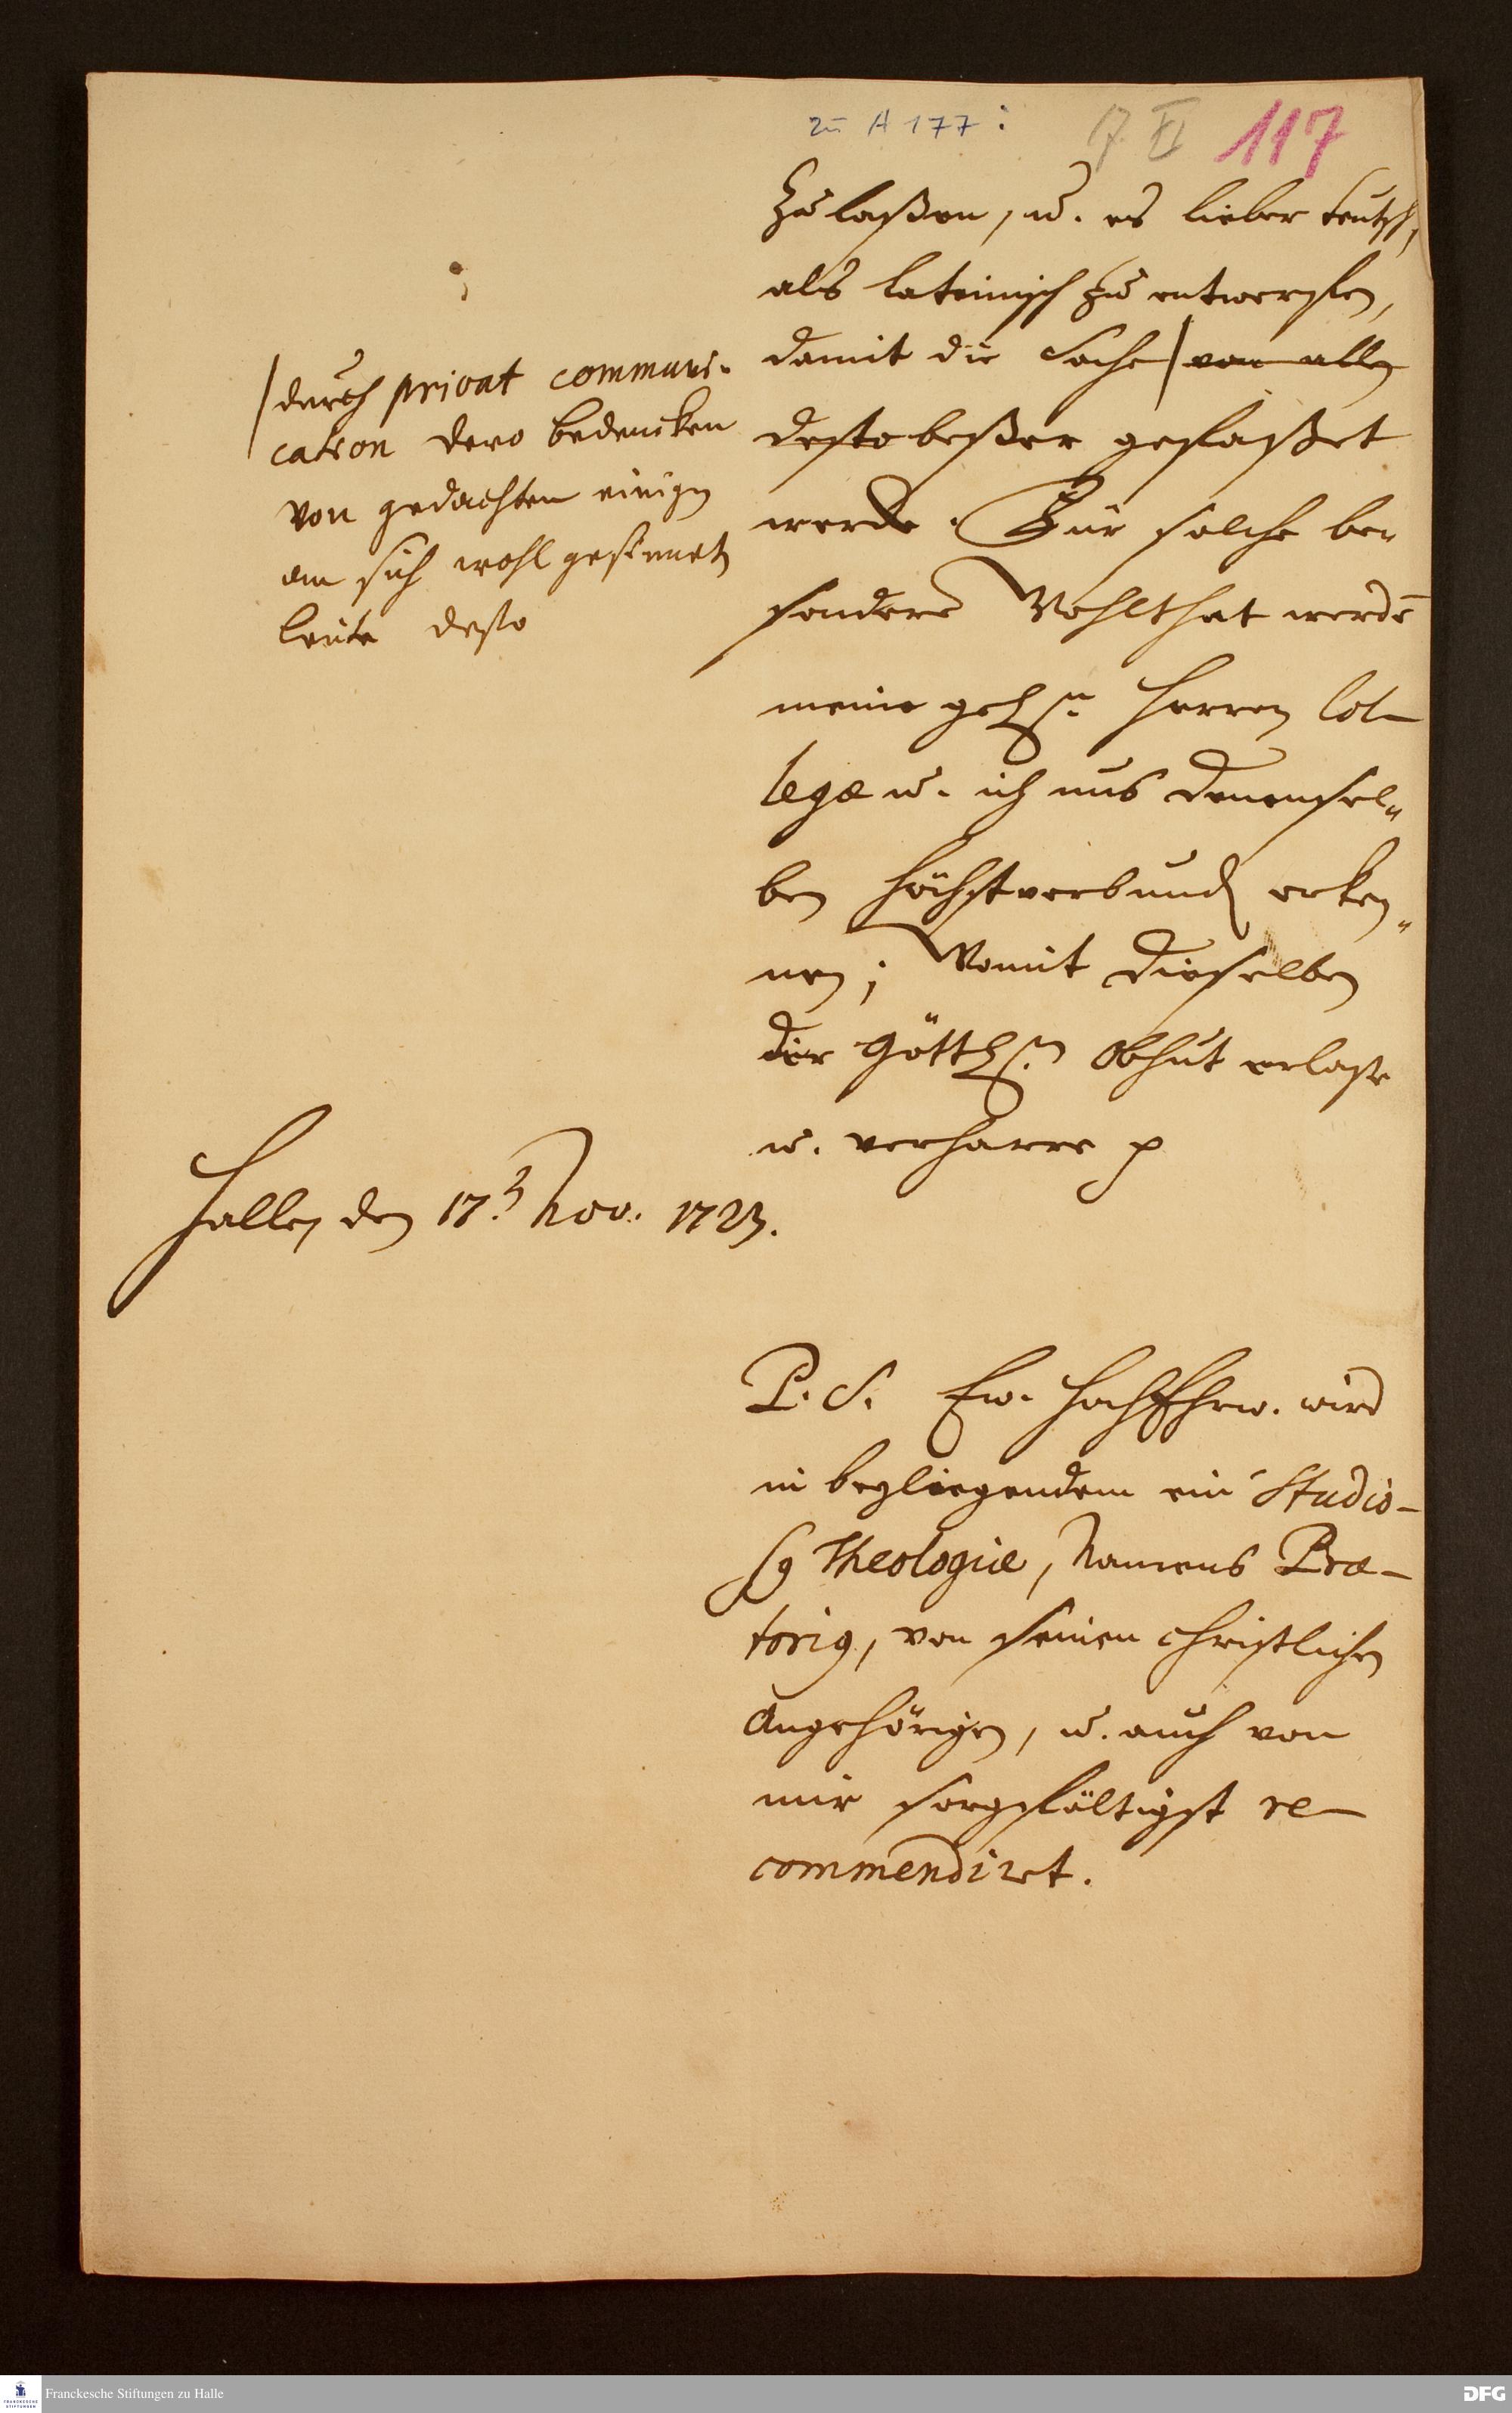 zu A 177:
17 XI 117
zu laßen, u. es lieber teutsch,
als lateinisch zu entwerffen,
damit die Sache / von allen
desto beßer gefaßet
werde. Für solche be-
sondere Wohlthat werdē
meine Herren Col-
legæ u. ich uns denensel-
ben höchstverbund erken-
nen; Womit dieselben
der Göttl. Obhut erlaße
u. verharre p
/ durch privat communi-
cation dero bedencken
von gedachten einigen
an sich wohl gesinneten
leute desto
Halle, den 17. Nov. 1723.
P.S. Ew. HochEhrw. wird
in beyliegendem ein Studio-
sus Theologiæ, Namens Præ-
torius, von seinen christlichen
Angehörigen, u. auch von
mir sorgfältigst re-
commendiret.
Franckesche Stiftungen zu Halle
DFG